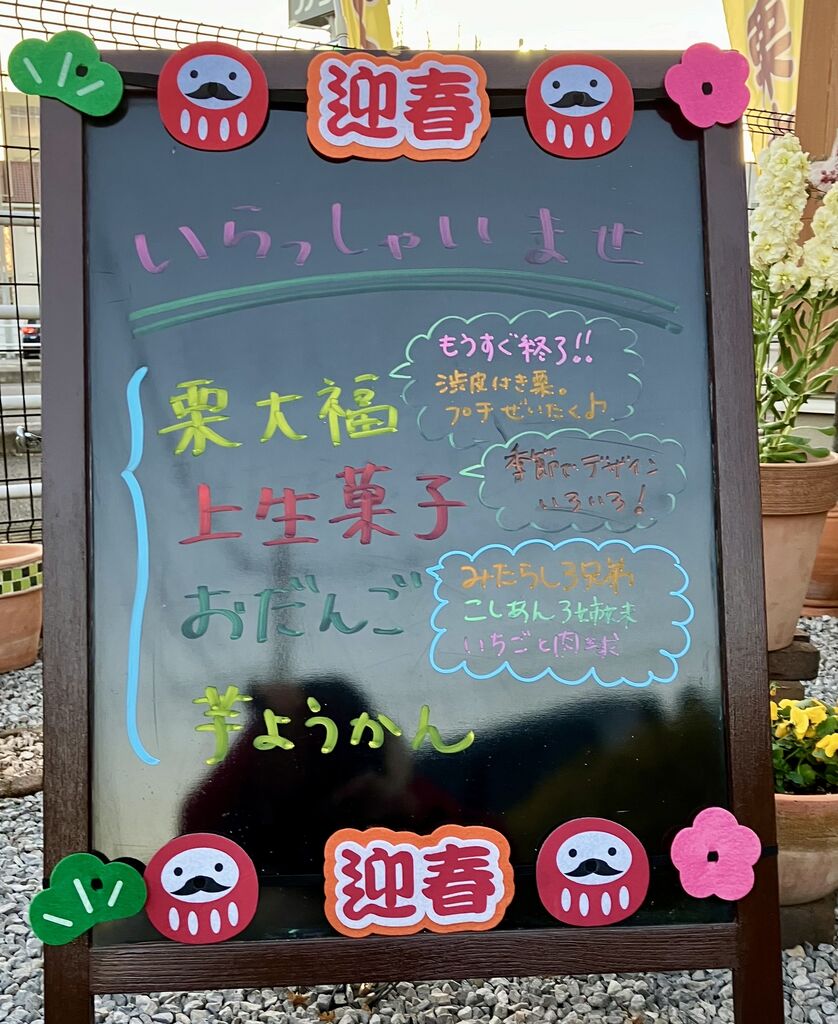 迎春
いらっしゃいませ
栗大福
もうすぐ終了!!
渋皮付き栗。
プチぜいたく♪
上生菓子
季節でデザイン
いろいろ!
おだんご
みたらし3兄弟
こしあん3姉妹
いちごと肉球
芋ようかん
迎春
栗